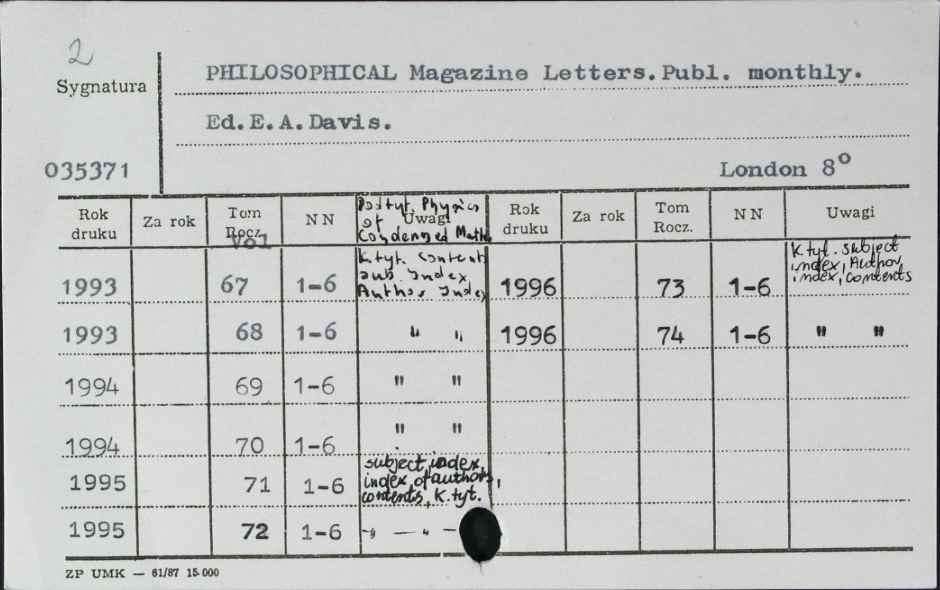 2
Sygnatura
PHILOSOPHICAL Magazine Letters. Publ. monthly.
Ed. E. A. Davis.
035371
London 8°
Rok druku Za rok Tom Rocz. Vol NN Podtyt. Physics of Uwagi Condensed Matt. Rok druku Za rok Tom Rocz. NN Uwagi
1993 67 1-6 K.tyt. Contents Sub. Index Author Index 1996 73 1-6 K.tyt. subject index, Author, index, contents
1993 68 1-6 " " 1996 74 1-6 " "
1994 69 1-6 " "
1994 70 1-6 " "
1995 71 1-6 subject index, index of authors, contents, K.tyt.
1995 72 1-6 " — " —
ZP UMK — 61/87 15 000